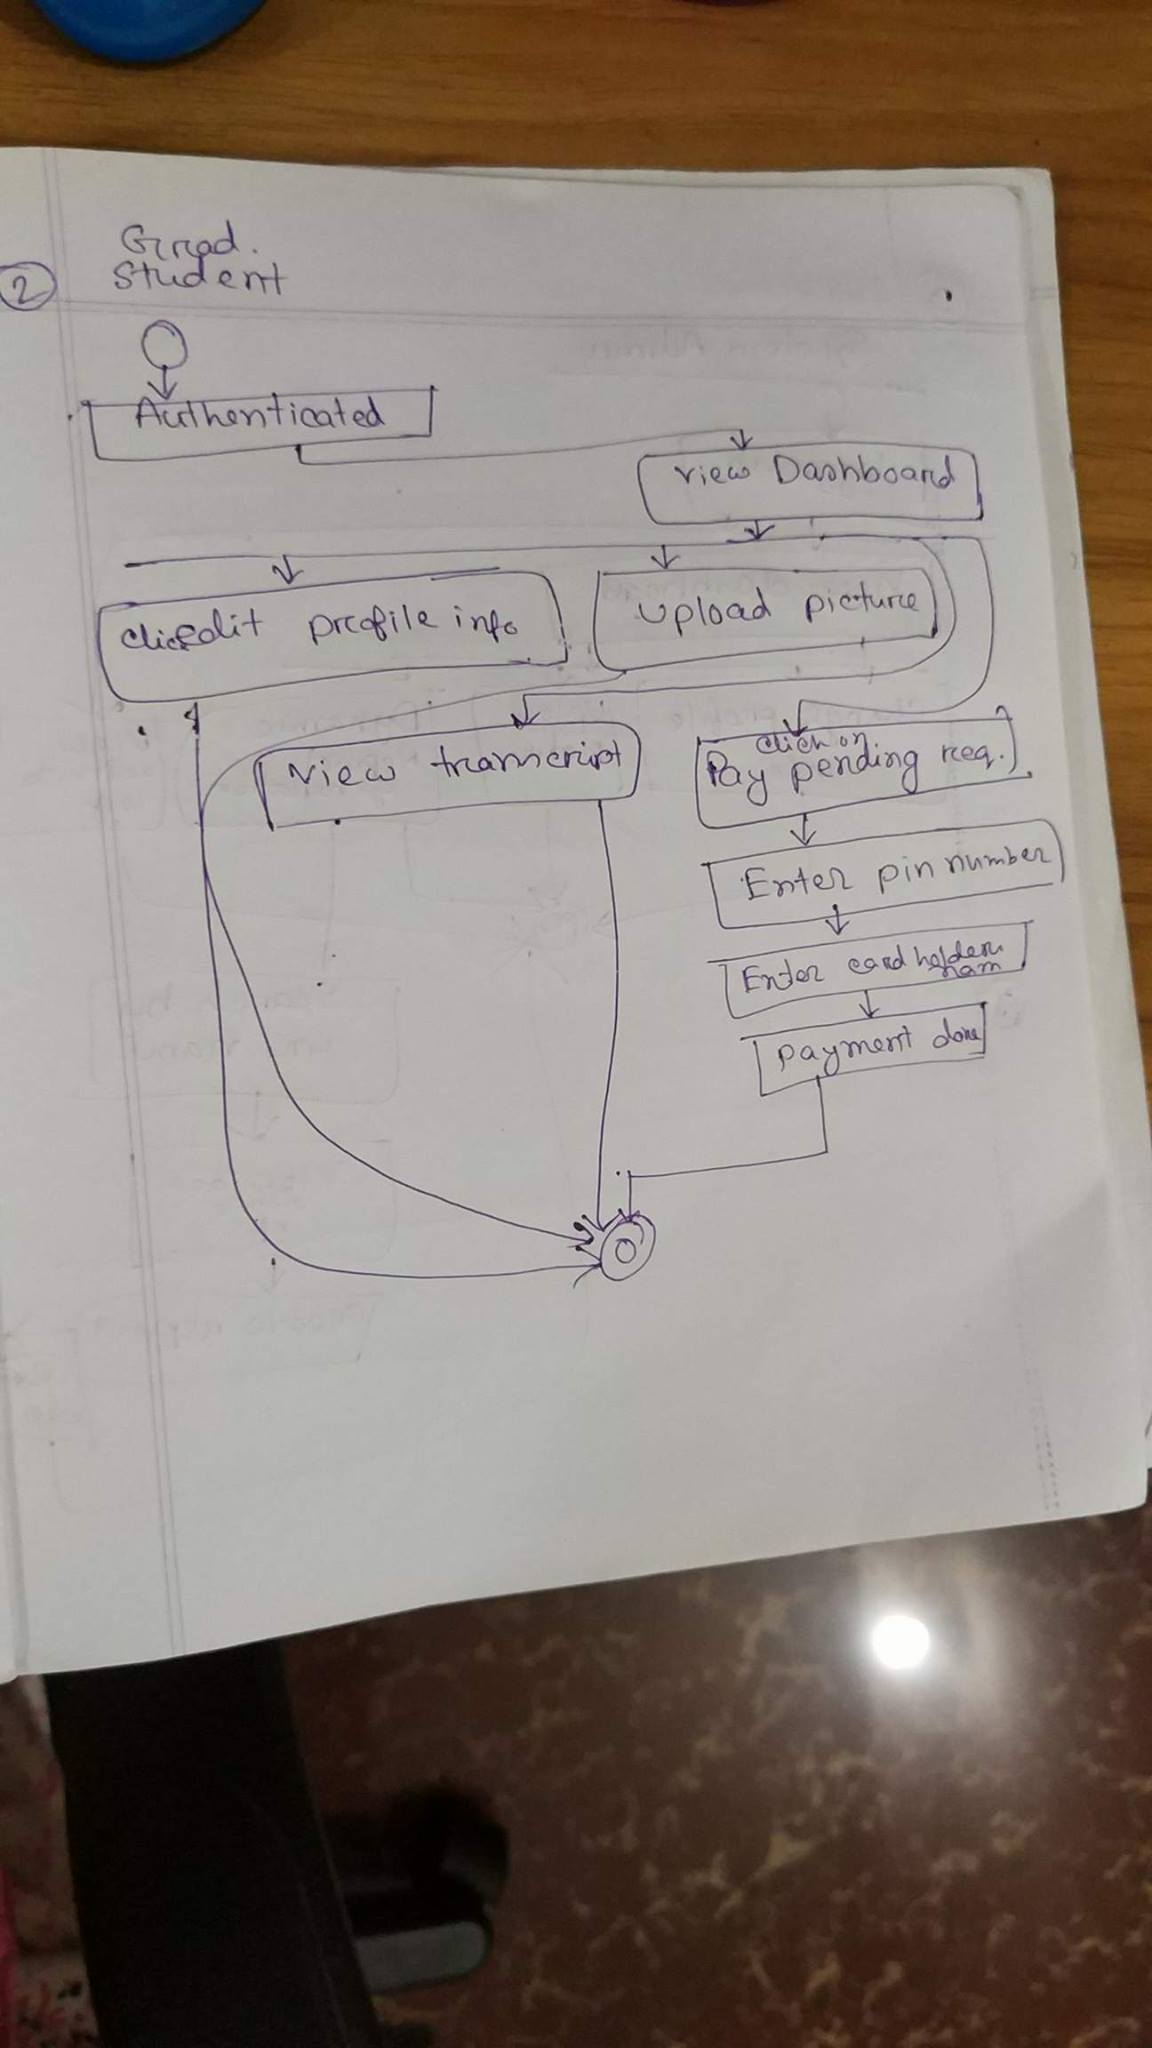 2
Grad.
Student
Authenticated
view Dashboard
edit profile info
upload picture
view trancript
click on
Pay pending req.
Enter pin number
Enter card holder
nam
payment done